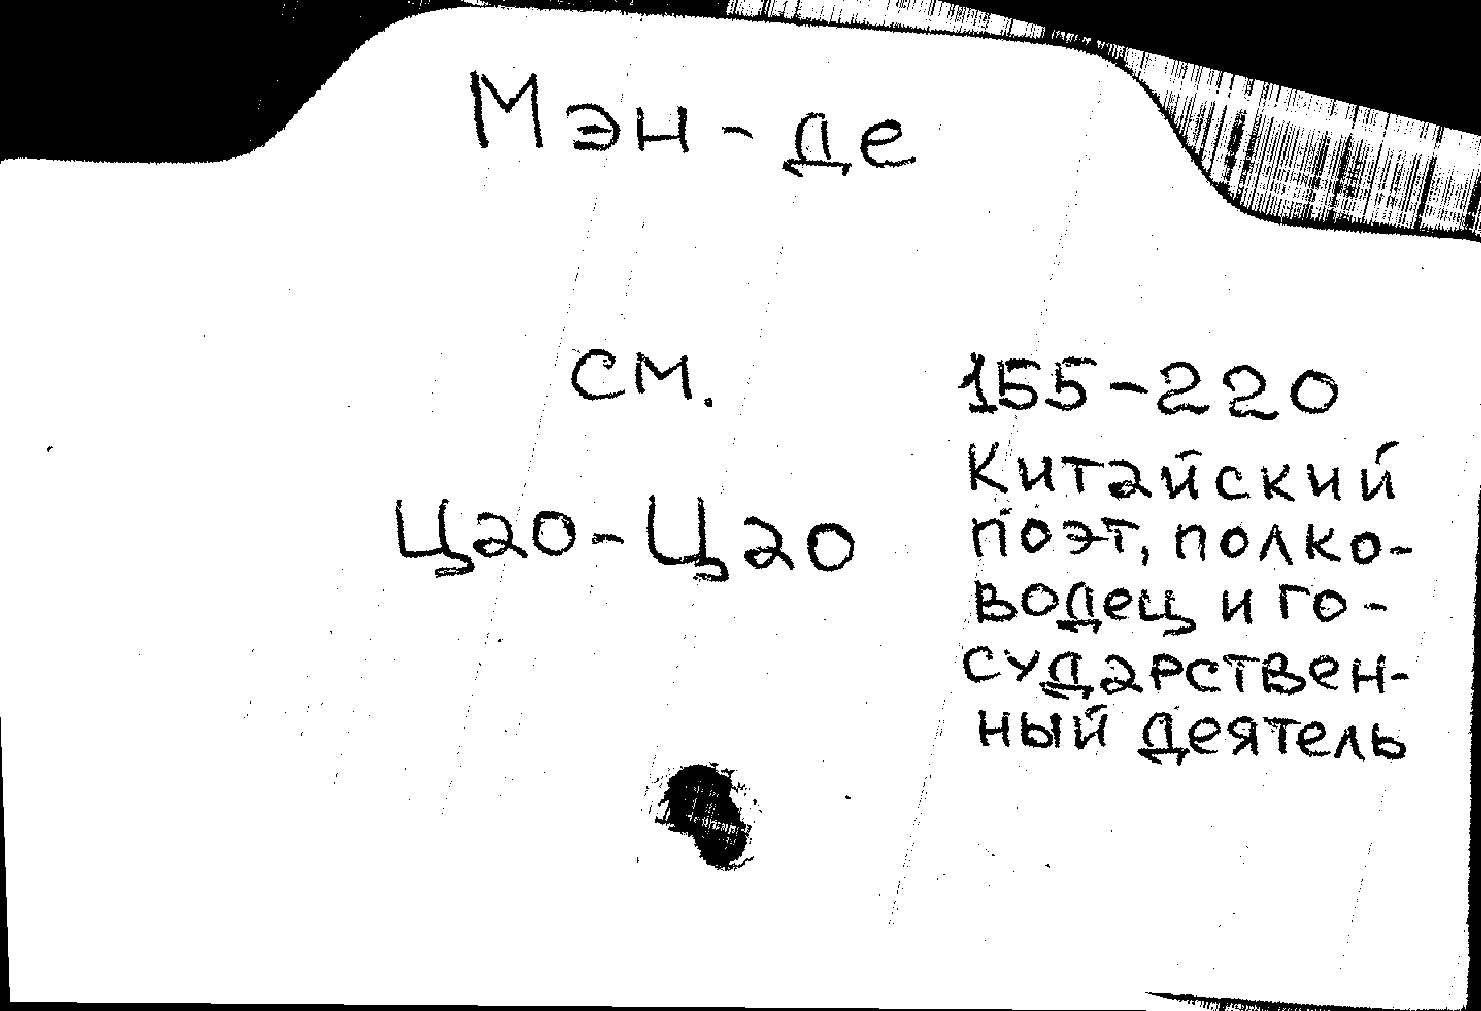 Мэн-де
см.
Цао-Цао
155-220
Китайский
поэт, полко-
водец и го-
сударствен-
ный деятель